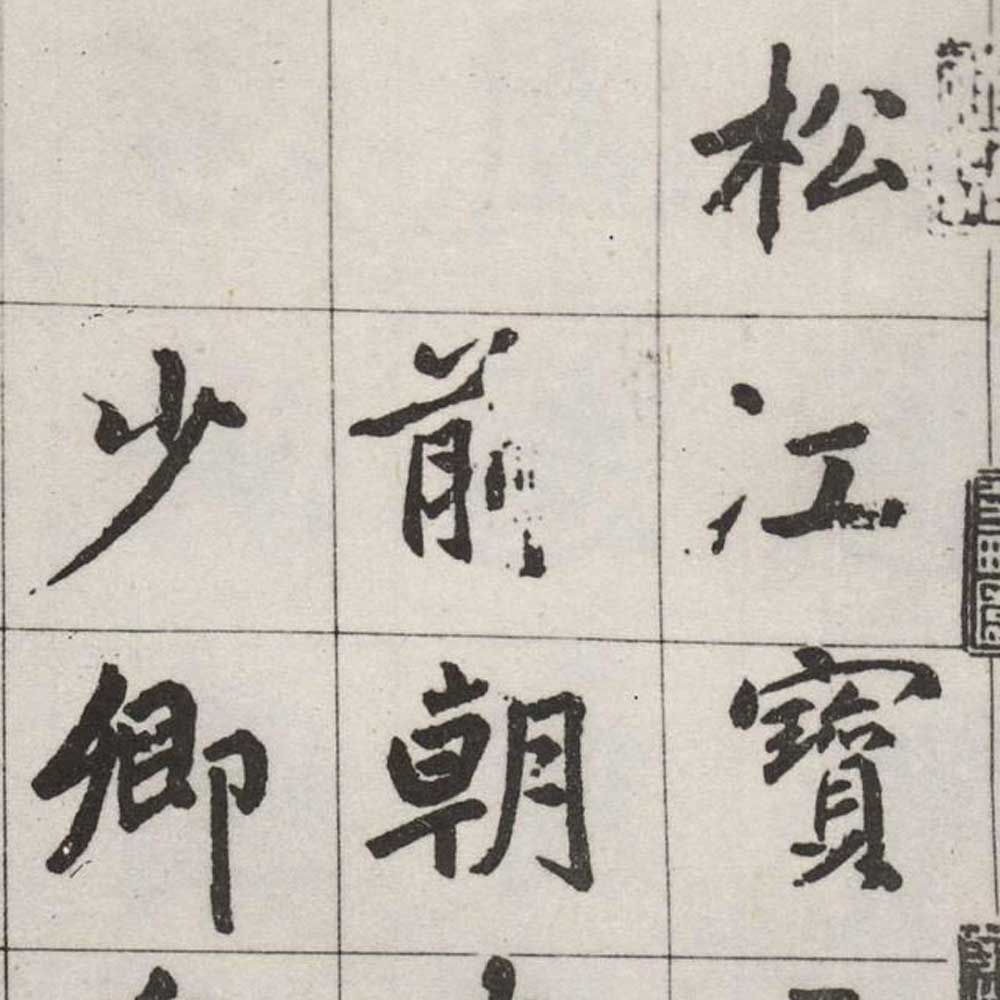 松江寶
前朝
少卿